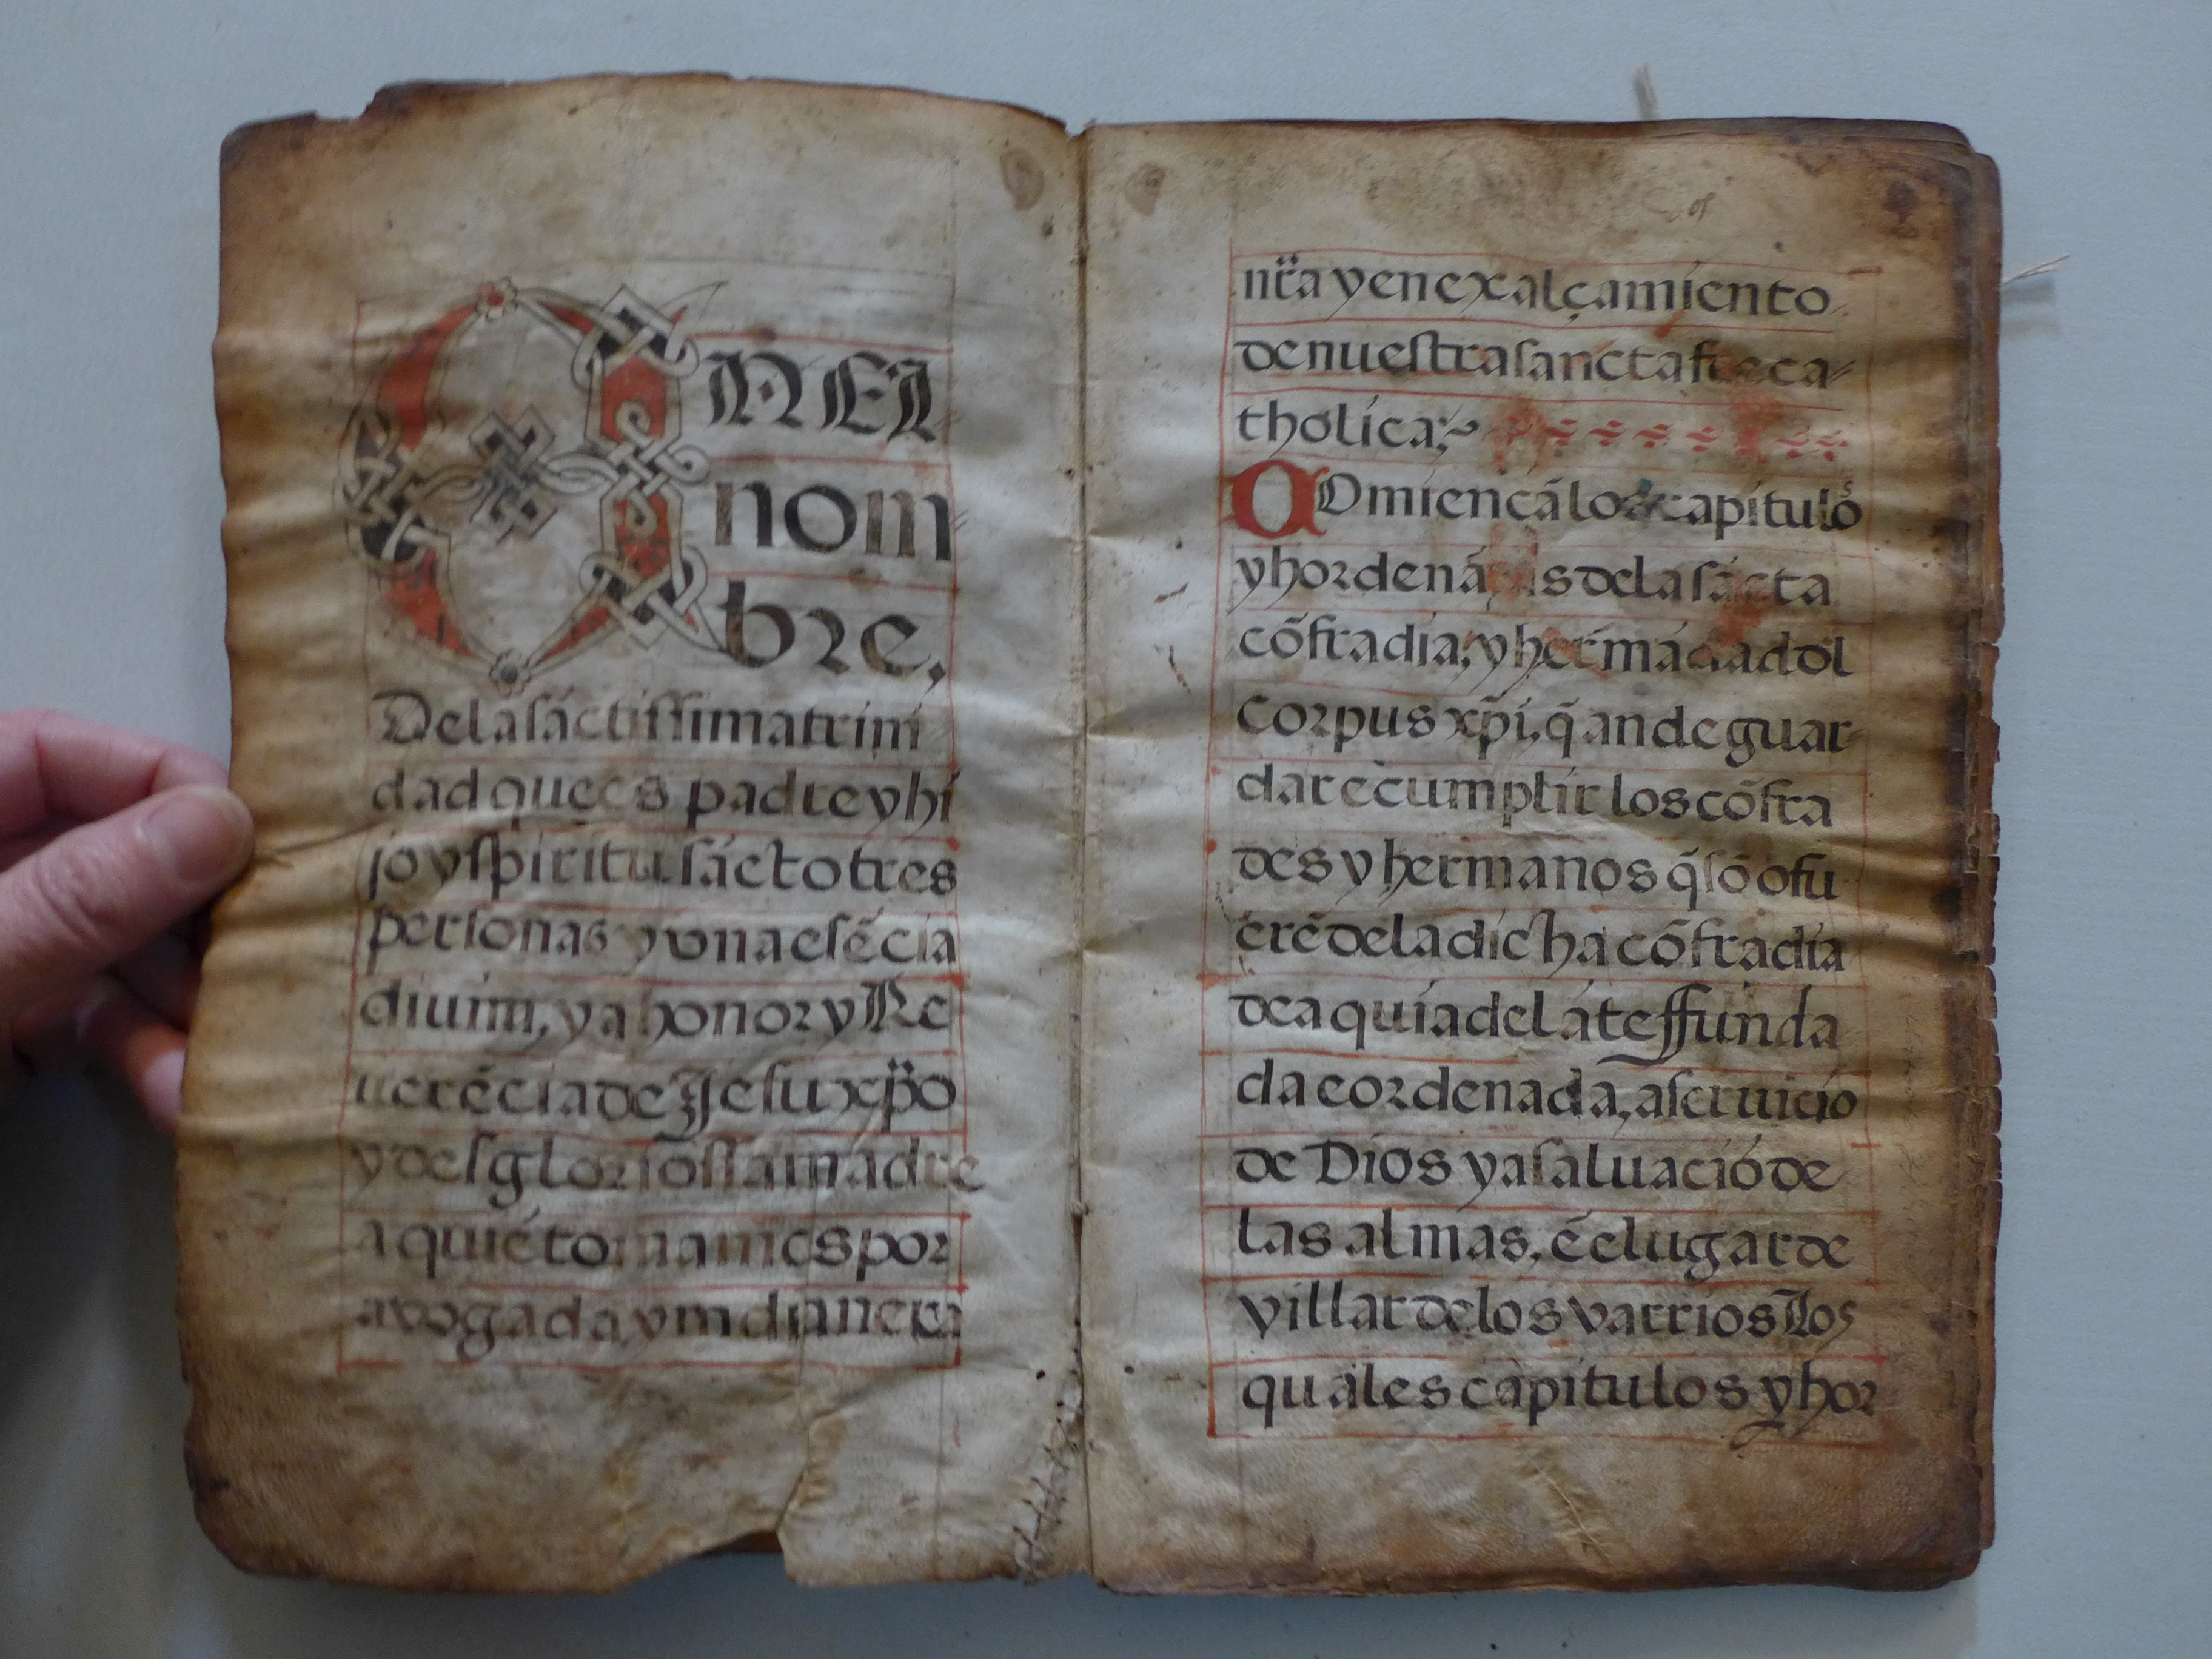 EN EL
nom
bre,
Dela sáctissima trini
dad que es padre y hi
jo y spiritu sácto tres
personas y vna esẽcia
diuina, y a honor y Re
uerẽcia de Jesu xp̃o
y de sgloriossa madre
a quiẽ tomamos por
avogada y
nr̃a y en exalçamiento
de nuestra sancta fee ca-
tholica;
COmiençã los capitulos
y hordenãças de la sãcta
cõfradia, y hermãdad dl
corpus xp̃i, q̃ an de guar-
dar e cumplir los cõfra
des y hermanos q̃ sõ o fu
erẽ de la dicha cõfradia
de aqui adelãte ffunda
da e ordenada, a seruicio
de Dios y a saluaciõ de
las almas, ẽ el lugar de
villar de los varrios Los
quales capitulos y hor